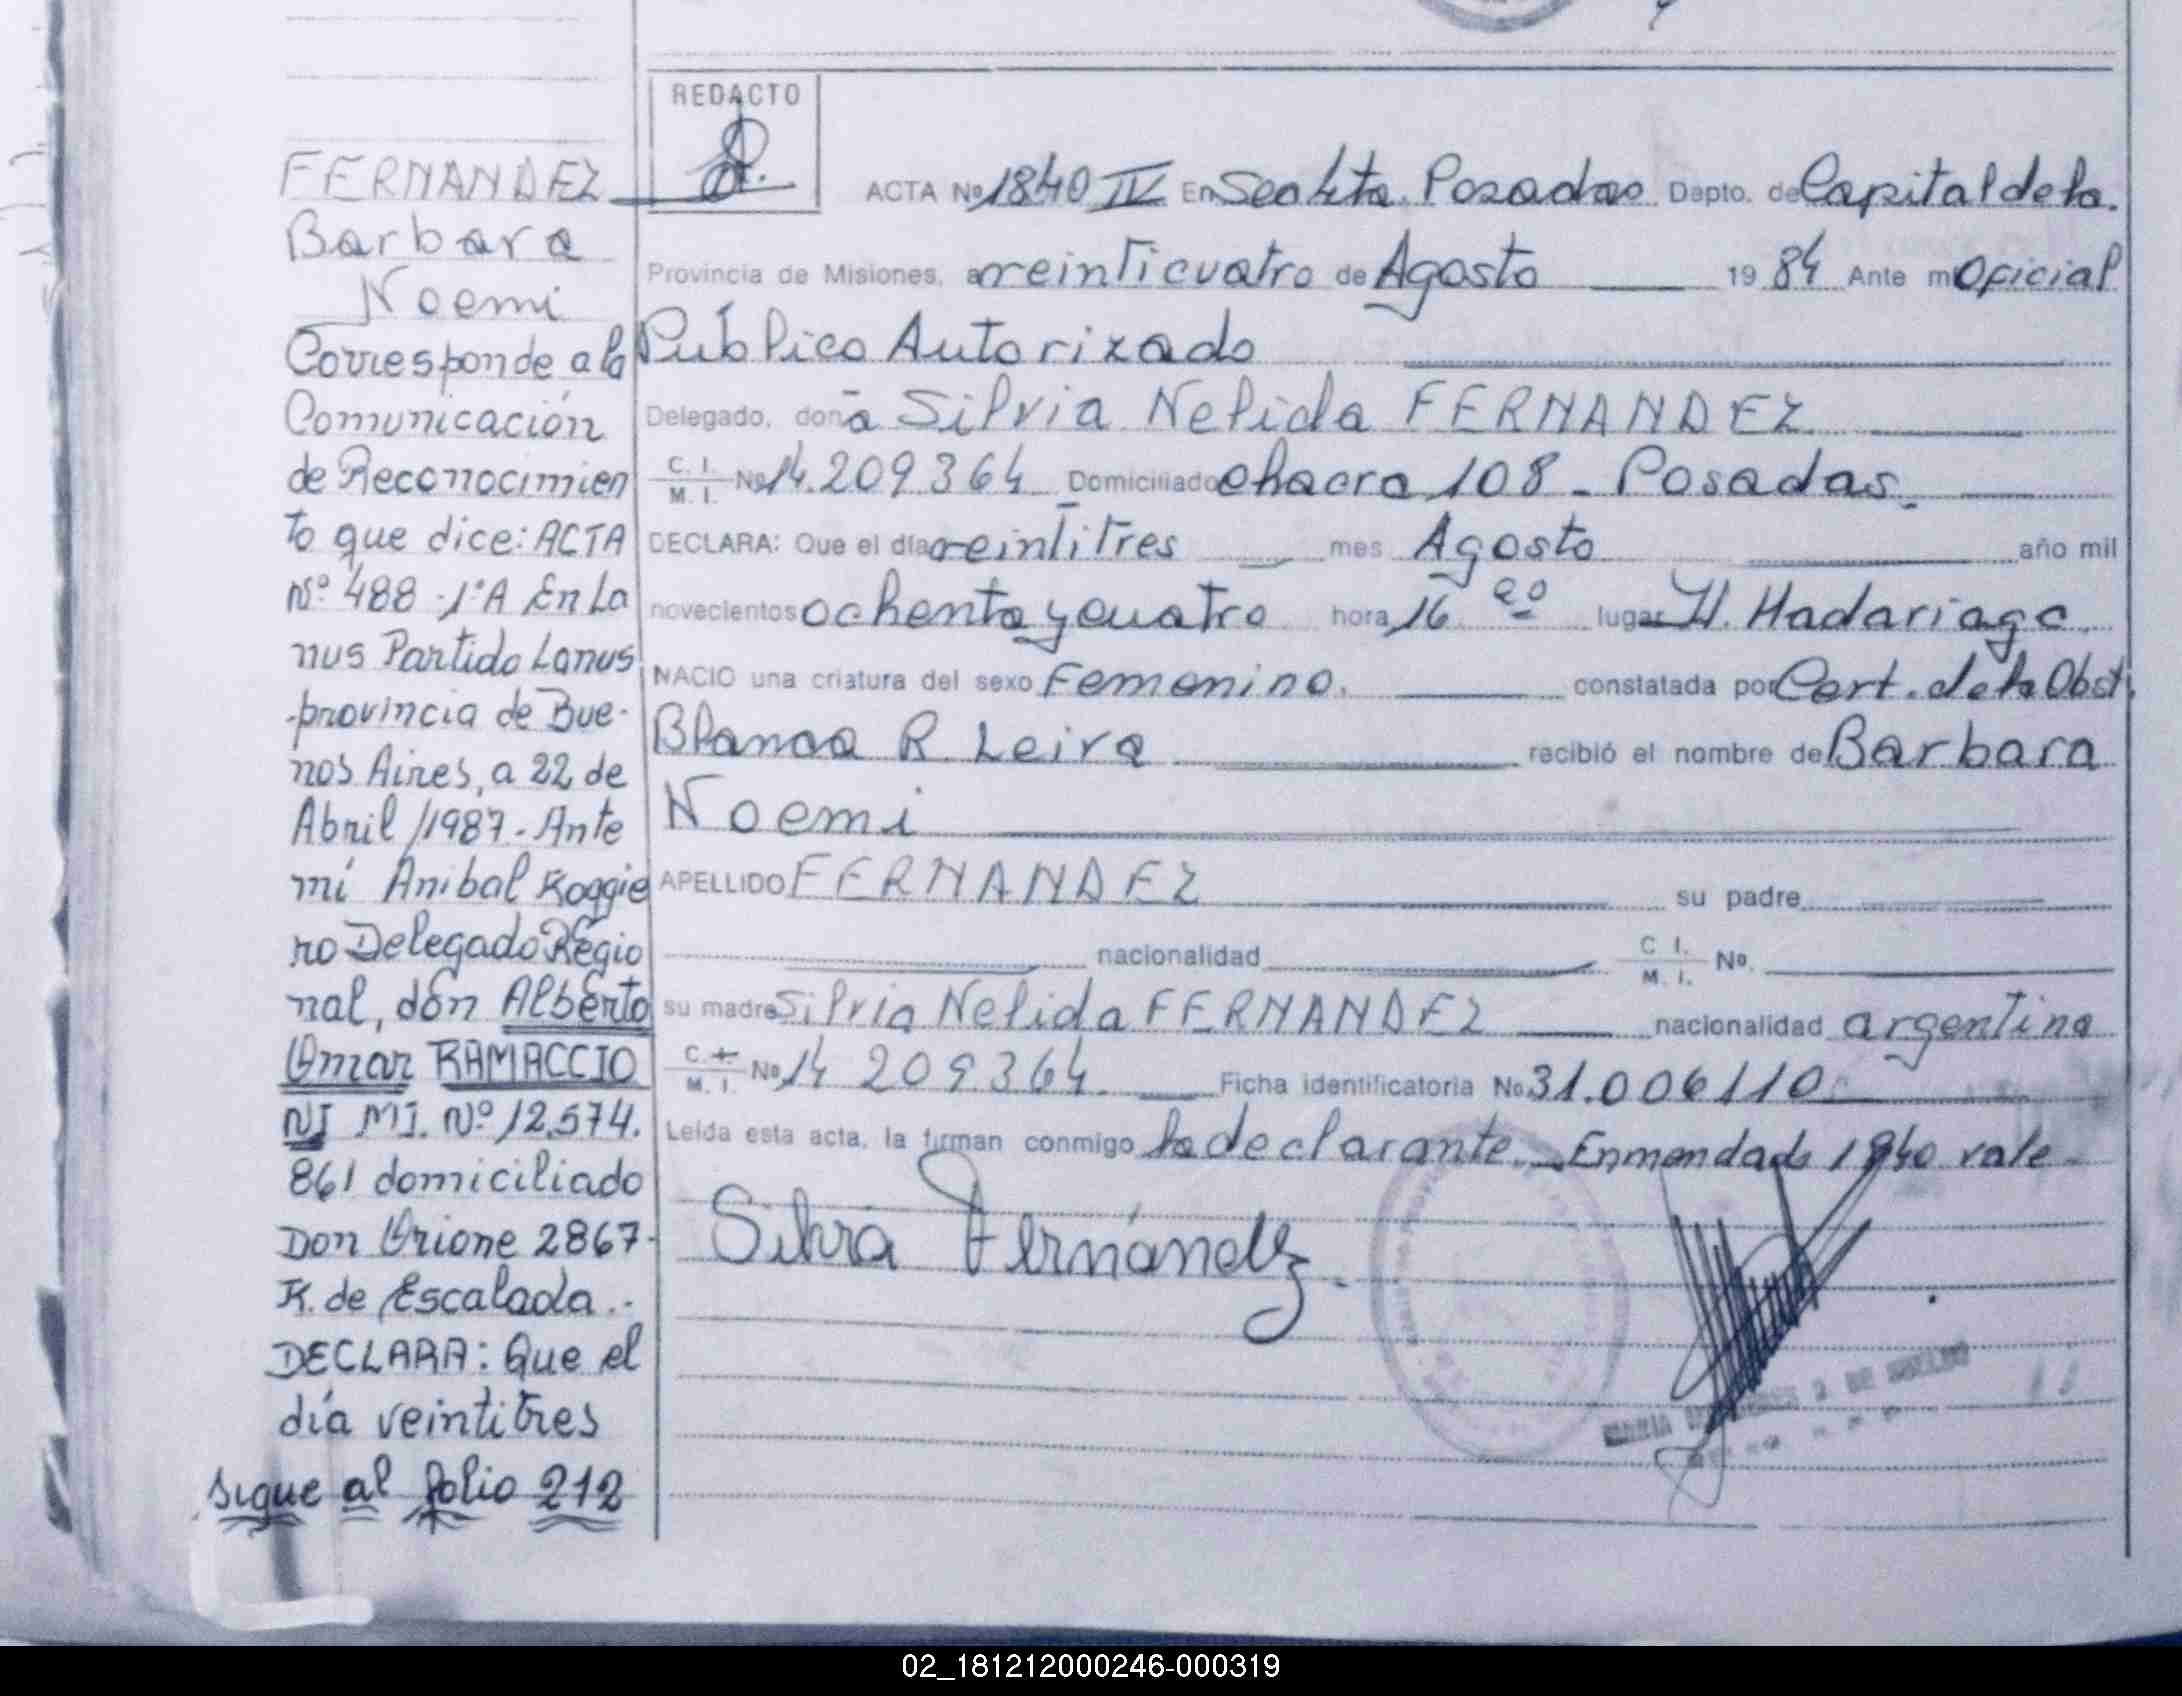 FERNANDEZ
Barbara
Noemi
Corresponde a la
Comunicación
de Reconocimien
to que dice: ACTA
Nº 488 - 1ºA En La
nus Partido Lanus
provincia de Bue-
nos Aires, a 22 de
Abril /1987.- Ante
mí Anibal Roggie
ro Delegado Regio
nal, don Alberto
Omar RAMACCIO
NI MI. Nº 12.574.
861 domiciliado
Don Orione 2867-
R. de Escalada.-
DECLARA: Que el
día veintitres
sigue al folio 212
REDACTO
ACTA Nº 1840 IV En Sec 4ta. Posadas Depto. de Capital de la.
Provincia de Misiones, a veinticuatro de Agosto 19 84 Ante mi Oficial
Público Autorizado
Delegado, doña Silvia Nelida FERNANDEZ
C. I. M. I. Nº 14.209364 Domiciliado chacra 108 - Posadas.
DECLARA: Que el día veintitres mes Agosto año mil
novecientos ochenta y cuatro hora 16 20 lugar H. Madariaga.
NACIO una criatura del sexo Femenino. constatada por Cert. de la Obst.
Blanca R. Leiva recibió el nombre de Barbara
Noemi
APELLIDO FERNANDEZ su padre
nacionalidad C I. M. I. Nº.
su madre Silvia Nelida FERNANDEZ nacionalidad argentina
C. I. M. I. Nº 14 209364. Ficha identificatoria Nº 31.006110
Leída esta acta, la firman conmigo la declarante. Enmendado 1840 vale
Silvia Fernández.
MARIA DE
02_181212000246-000319